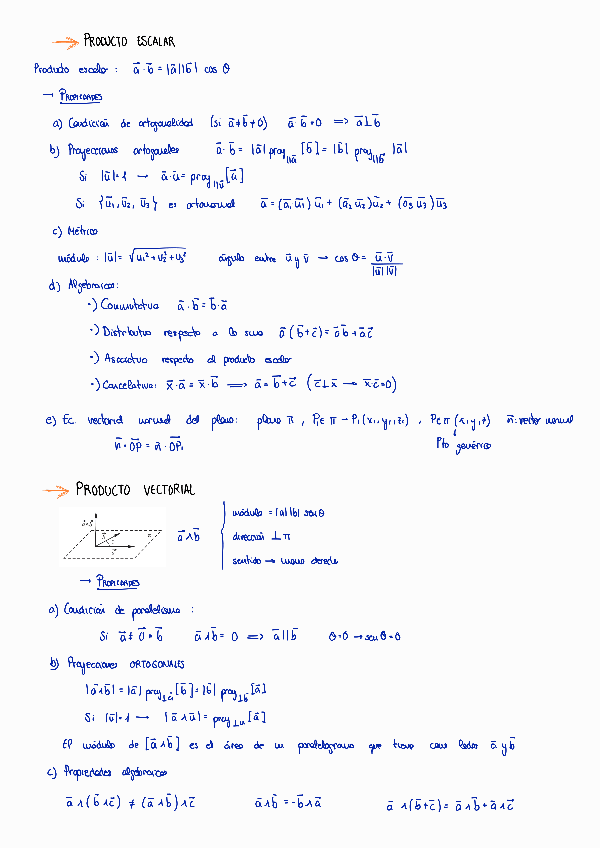 → PRODUCTO ESCALAR
Producto escalar : a⃗ · b⃗ = |a⃗||b⃗| cos θ
→ PROPIEDADES
a) Condición de ortogonalidad (si a⃗ ≠ b⃗ ≠ 0) a⃗ · b⃗ = 0 ⟹ a⃗ ⊥ b⃗
b) Proyecciones ortogonales a⃗ · b⃗ = |a⃗| proy||a⃗ [b⃗] = |b⃗| proy||b⃗ |a⃗|
Si |u⃗| = 1 → a⃗ · u⃗ = proy||u⃗ [a⃗]
Si {u⃗₁, u⃗₂, u⃗₃} es ortonormal a⃗ = (a⃗, u⃗₁) u⃗₁ + (a⃗₂ u⃗₂) u⃗₂ + (a⃗₃ u⃗₃) u⃗₃
c) Métrica
módulo : |u⃗| = √u₁² + u₂² + u₃² ángulo entre u⃗ y v⃗ → cos θ = u⃗ · v⃗ / |u⃗| |v⃗|
d) Algebraicas:
·) Conmutativa a⃗ · b⃗ = b⃗ · a⃗
·) Distributiva respecto a la suma a⃗ (b⃗ + c⃗) = a⃗ b⃗ + a⃗ c⃗
·) Asociativa respecto al producto escalar
·) Cancelativa: x⃗ · a⃗ = x⃗ · b⃗ ⟹ a⃗ = b⃗ + c⃗ (c⃗ ⊥ x⃗ → x⃗ · c⃗ = 0)
e) Ec. vectorial normal del plano: plano π , P₁ ∈ π − P₁(x₁, y₁, z₁) , P ∈ π (x, y, z) n⃗: vector normal
n⃗ · OP⃗ = n⃗ · OP⃗₁ Pto genérico
→ PRODUCTO VECTORIAL
a⃗ ∧ b⃗
módulo = |a||b| sen θ
dirección ⊥ π
sentido → mano derecha
→ PROPIEDADES
a) Condición de paralelismo :
Si a⃗ ≠ 0⃗ ≠ b⃗ a⃗ ∧ b⃗ = 0 ⟹ a⃗ || b⃗ θ = 0 → sen θ = 0
b) Proyecciones ORTOGONALES
|a⃗ ∧ b⃗| = |a⃗| proy⊥a⃗ [b⃗] = |b⃗| proy⊥b⃗ [a⃗]
Si |u⃗| = 1 → |a⃗ ∧ u⃗| = proy⊥u [a⃗]
El módulo de [a⃗ ∧ b⃗] es el área de un paralelogramo que tiene como lados a⃗ y b⃗
c) Propiedades algebraicas
a⃗ ∧ (b⃗ ∧ c⃗) ≠ (a⃗ ∧ b⃗) ∧ c⃗ a⃗ ∧ b⃗ = − b⃗ ∧ a⃗ a⃗ ∧ (b⃗ + c⃗) = a⃗ ∧ b⃗ + a⃗ ∧ c⃗